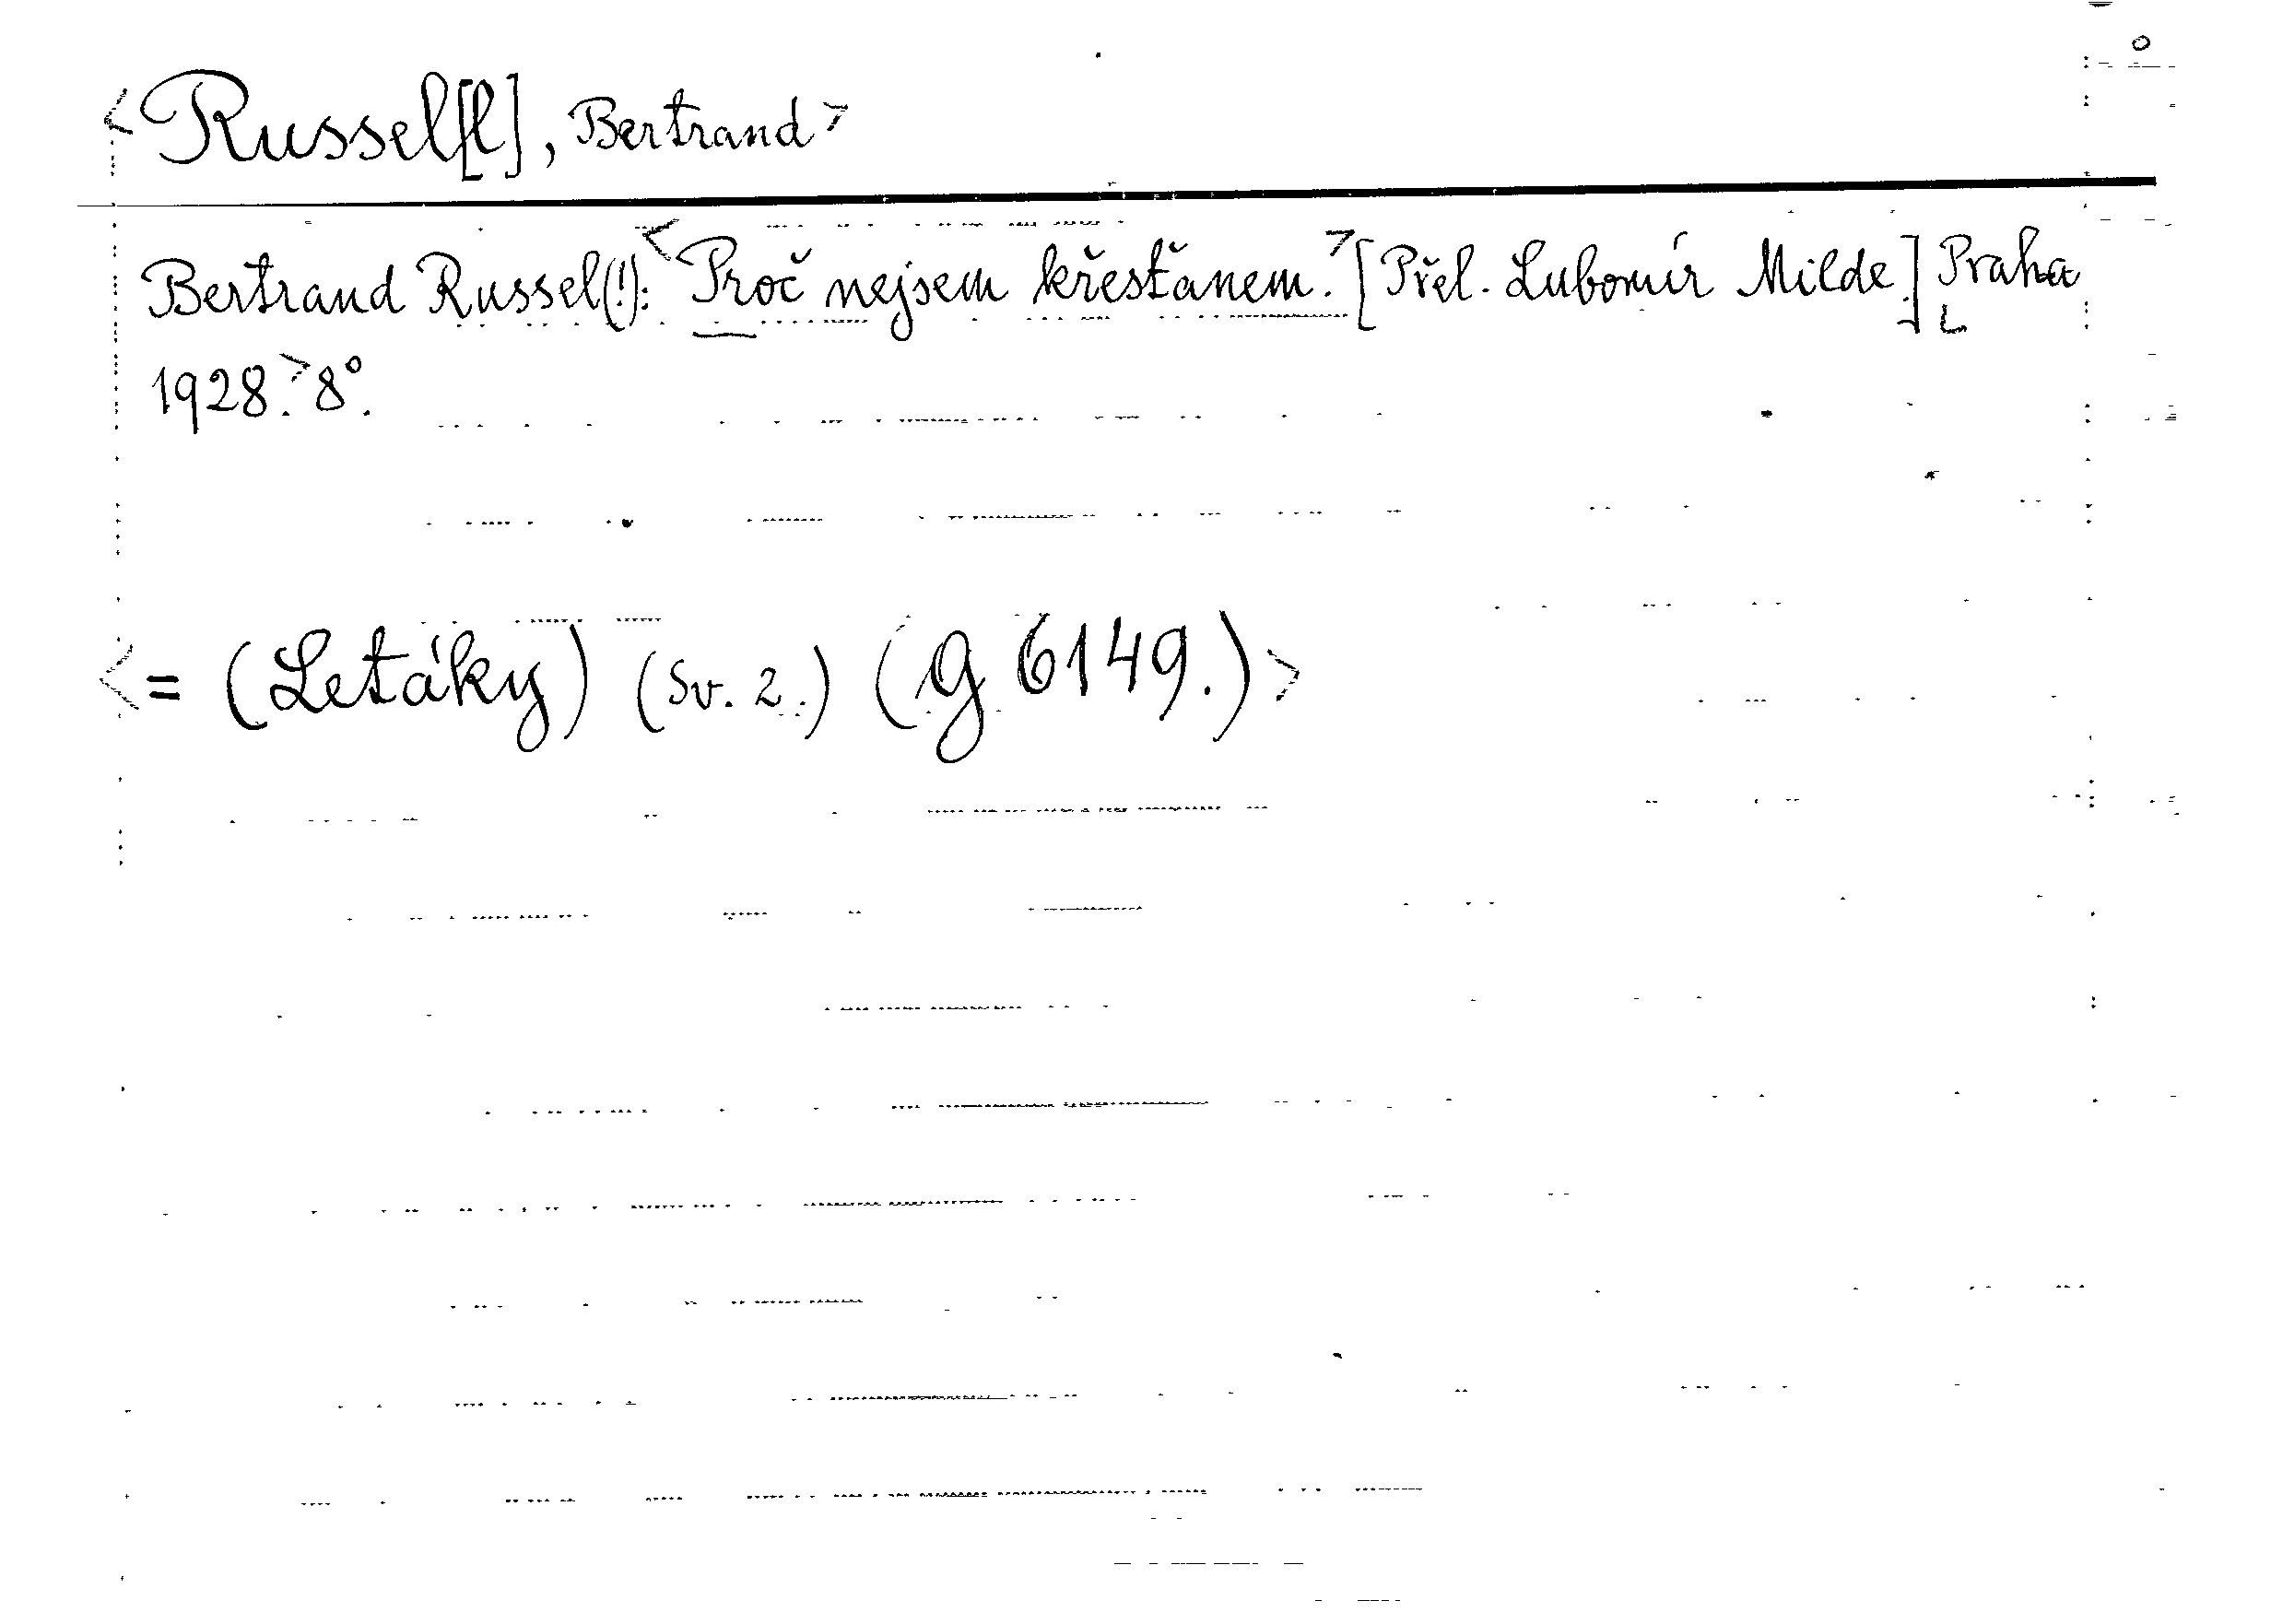 <Russel[l], Bertrand>
Bertrand Russel(!): <Proč nejsem křesťanem.> [Přel. Lubomír Milde.] <Praha
1928.> 8°.
<= (Letáky) (Sv. 2.) (g 6149.)>